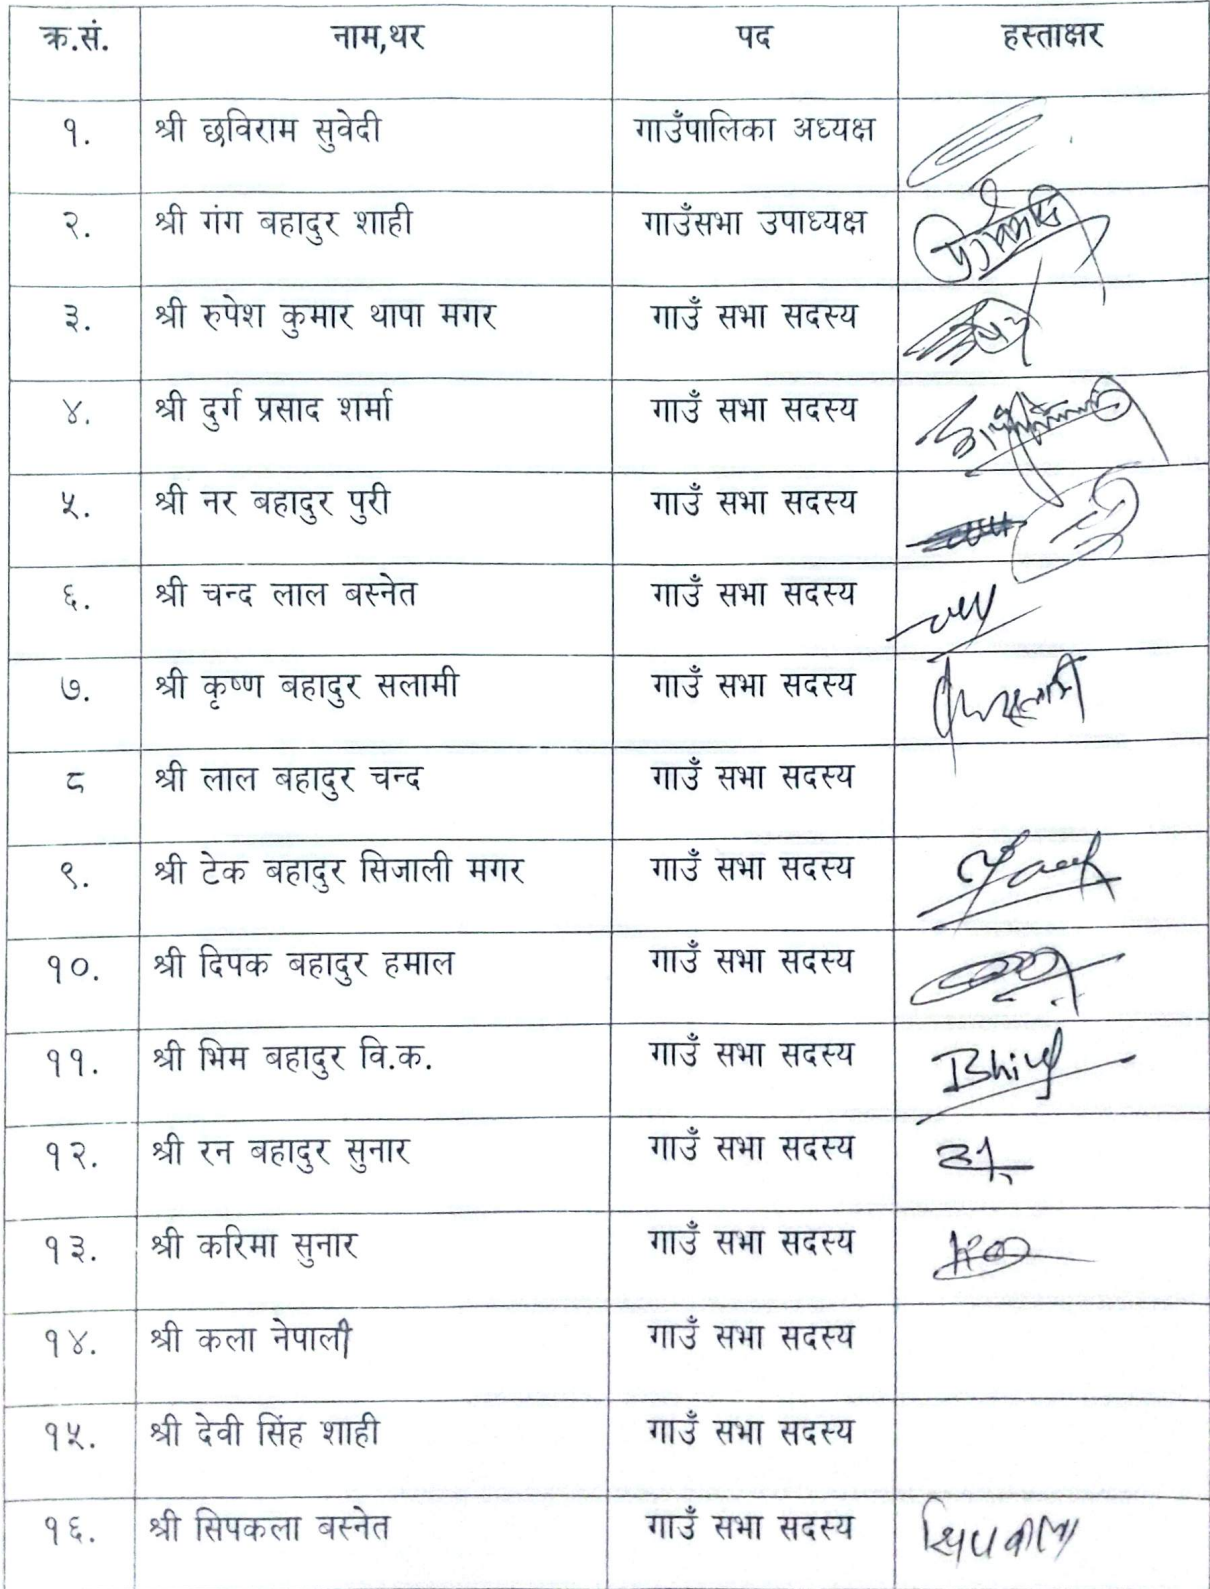 क्र.सं. नाम,थर पद हस्ताक्षर
१. श्री छविराम सुवेदी गाउँपालिका अध्यक्ष
२. श्री गंग बहादुर शाही गाउँसभा उपाध्यक्ष
३. श्री रुपेश कुमार थापा मगर गाउँ सभा सदस्य
४. श्री दुर्ग प्रसाद शर्मा गाउँ सभा सदस्य
५. श्री नर बहादुर पुरी गाउँ सभा सदस्य
६. श्री चन्द लाल बस्नेत गाउँ सभा सदस्य
७. श्री कृष्ण बहादुर सलामी गाउँ सभा सदस्य
८ श्री लाल बहादुर चन्द गाउँ सभा सदस्य
९. श्री टेक बहादुर सिजाली मगर गाउँ सभा सदस्य
१०. श्री दिपक बहादुर हमाल गाउँ सभा सदस्य
११. श्री भिम बहादुर वि.क. गाउँ सभा सदस्य
१२. श्री रन बहादुर सुनार गाउँ सभा सदस्य
१३. श्री करिमा सुनार गाउँ सभा सदस्य
१४. श्री कला नेपाली गाउँ सभा सदस्य
१५. श्री देवी सिंह शाही गाउँ सभा सदस्य
१६. श्री सिपकला बस्नेत गाउँ सभा सदस्य सिपकला